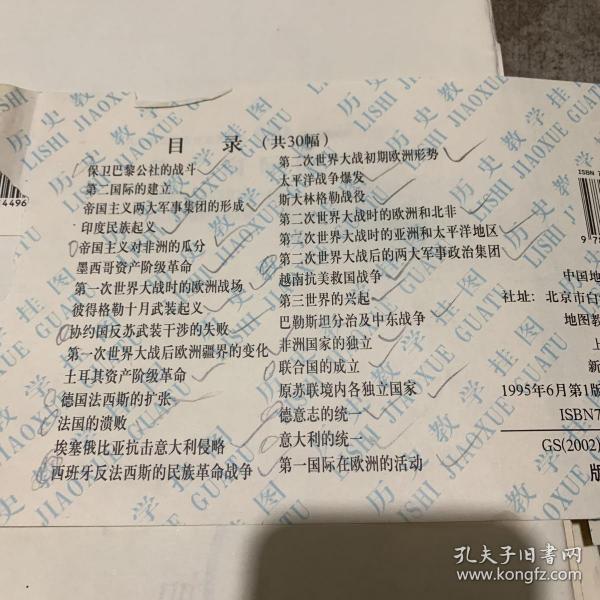 历史教学挂图
LISHI JIAOXUE GUATU
目 录 (共30幅)
保卫巴黎公社的战斗
第二国际的建立
帝国主义两大军事集团的形成
印度民族起义
帝国主义对非洲的瓜分
墨西哥资产阶级革命
第一次世界大战时的欧洲战场
彼得格勒十月武装起义
协约国反苏武装干涉的失败
第一次世界大战后欧洲疆界的变化
土耳其资产阶级革命
德国法西斯的扩张
法国的溃败
埃塞俄比亚抗击意大利侵略
西班牙反法西斯的民族革命战争
第二次世界大战初期欧洲形势
太平洋战争爆发
斯大林格勒战役
第二次世界大战时的欧洲和北非
第二次世界大战时的亚洲和太平洋地区
第二次世界大战后的两大军事政治集团
越南抗美救国战争
第三世界的兴起
巴勒斯坦分治及中东战争
非洲国家的独立
联合国的成立
原苏联境内各独立国家
德意志的统一
意大利的统一
第一国际在欧洲的活动
4496
ISBN 7
9 78
中国地
社址: 北京市白
地图教
上
新
1995年6月第1版
ISBN7
GS(2002)
版
孔夫子旧书网
www.kongfz.com